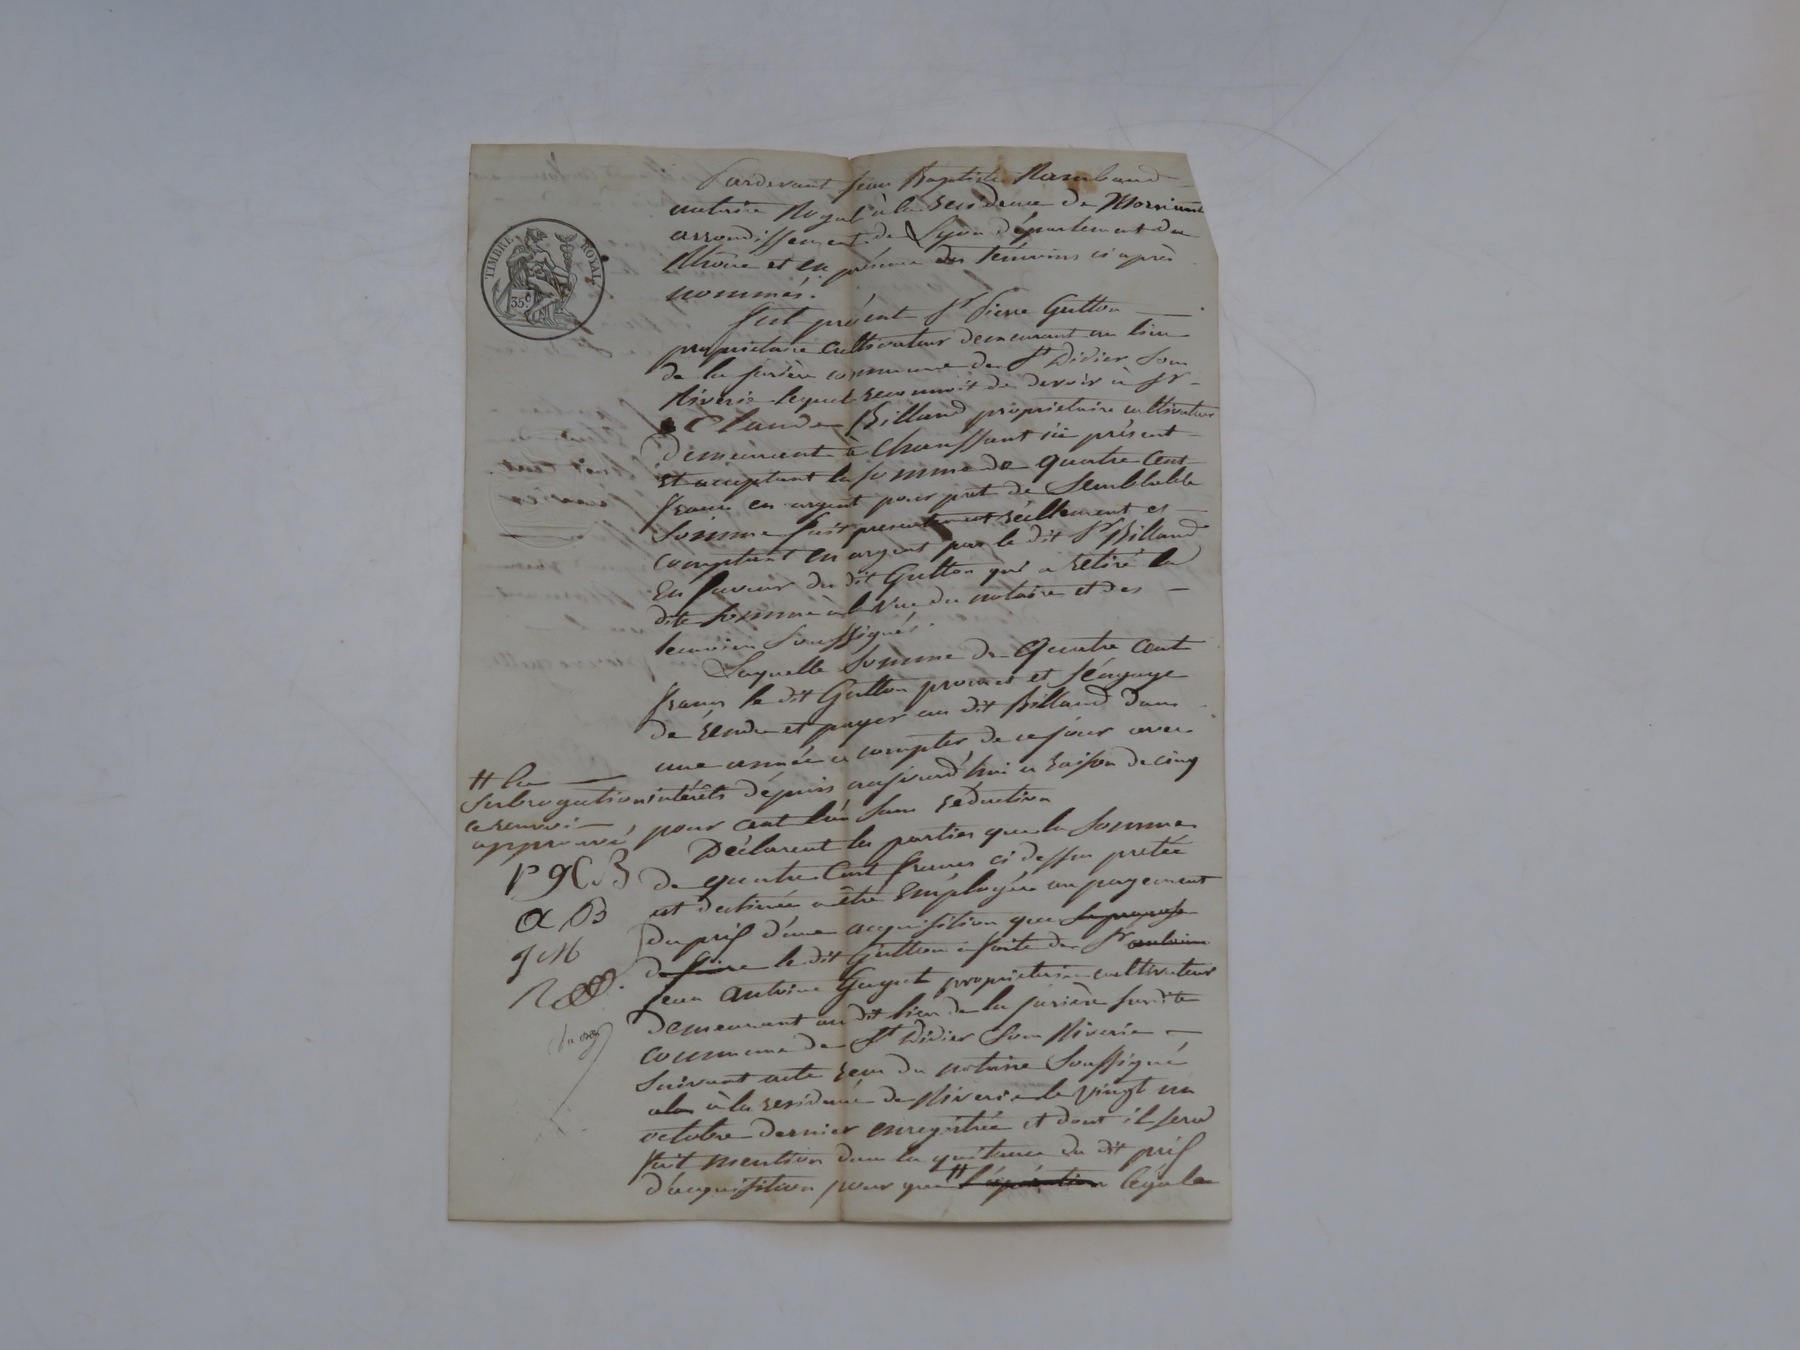 TIMBRE ROYAL
35c
Pardevant Jean Baptiste Rambaud
notaire Royal à la residence de Mornant
arrondissement de Lyon département du
Rhône et en présence des témoins ci après
nommés.
fut présent Sr Pierre Gutton
propriétaire cultivateur demeurant au lieu
de la jarière commune de St Didier Sous
Riverie lequel reconnoit de devoir à Sr
Claude Billand propriétaire cultivateur
demeurant à Chaussant ici présent
et acceptant la somme de quatre Cent
francs en argent pour pret de Semblable
Somme fait presentement réellement et
comptant en argent par le dit Sr Billand
En faveur du dit Gutton qui a retiré la
dite Somme à la vue du notaire et des
temoins Soussignés.
Laquelle Somme de Quatre Cent
francs le dit Gutton promet et s'éngage
de rendre et payer au dit Billand dans
une année a compter de ce jour avec
intérêts dépuis aujourd'hui a raison de cinq
pour cent l'an Sans réduction
Déclarent les parties que la Somme
de quatre Cent francs ci dessus pretée
est destinée a être Employée au payement
du prix d'une acquisition que se propose
de faire le dit Gutton a faite du Sr antoine
Jean Antoine Guyot propriétaire cultivateur
demeurant au dit lieu de la jarière susdite
commune de St Didier Sous Riverie
Suivant acte reçu du notaire Soussigné
alors à la residence de Riverie le vingt un
octobre dernier enregistrée et dont il sera
fait mention dans la quitance du dit prix
d'acquisition pour que # l'opération légale
# la
Subrogation
ce renvoi
approuvé
P G C B
a B
J M
R